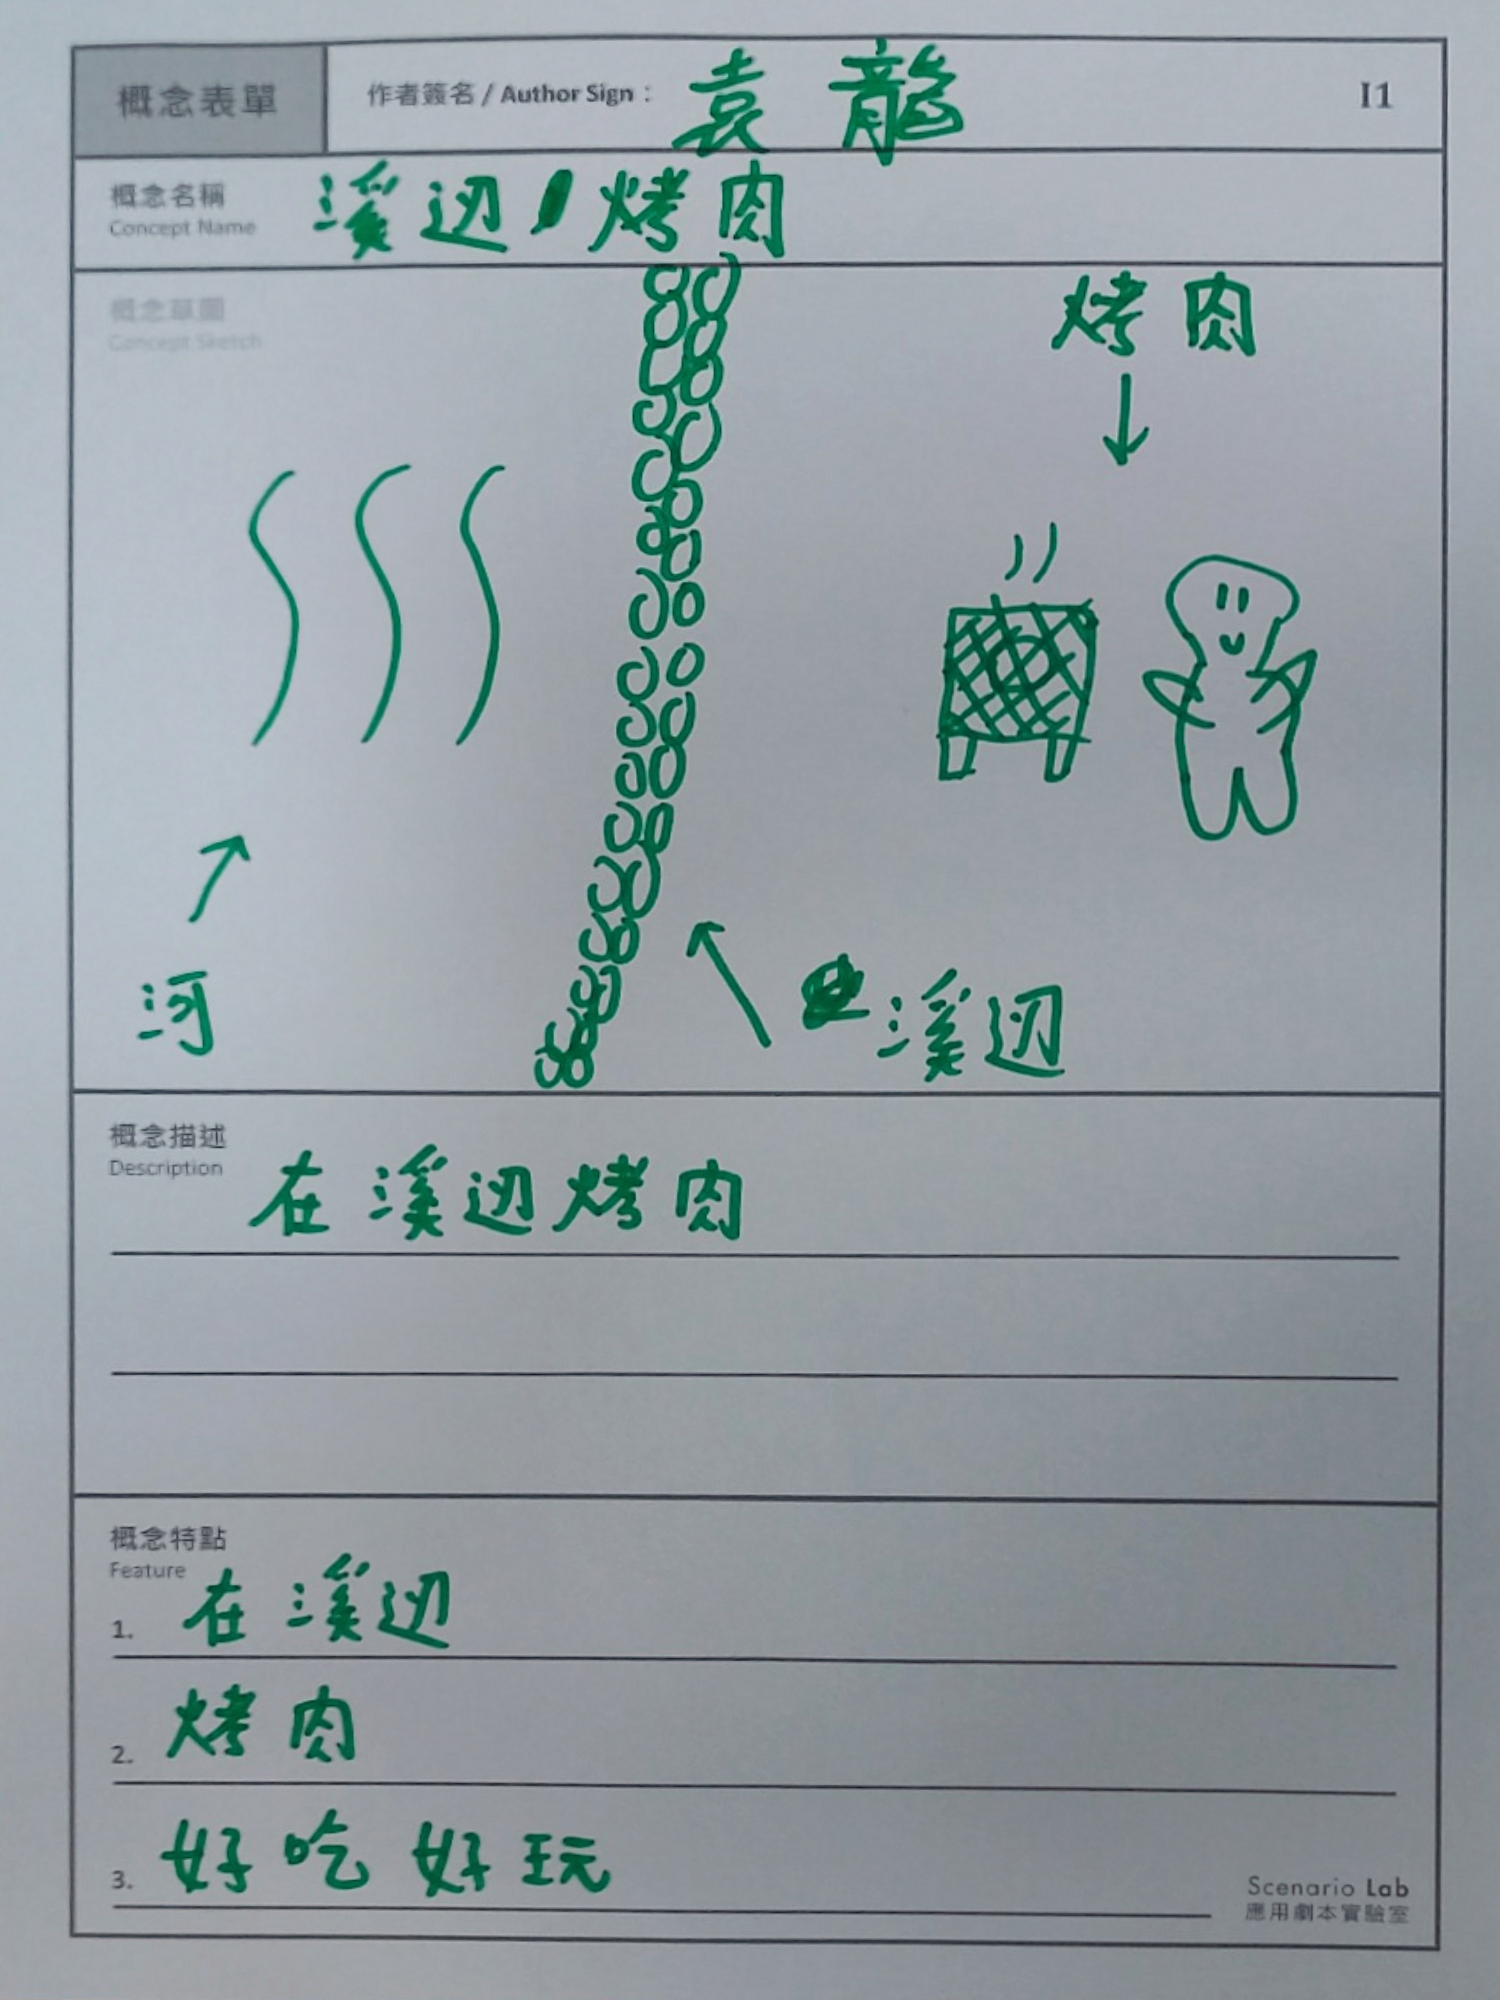 概念表單
作者簽名 / Author Sign : 袁龍
I1
概念名稱
Concept Name
溪边烤肉
概念草圖
Concept Sketch
烤肉
河
溪边
概念描述
Description
在溪边烤肉
概念特點
Feature
1. 在溪边
2. 烤肉
3. 好吃好玩
Scenario Lab
應用劇本實驗室